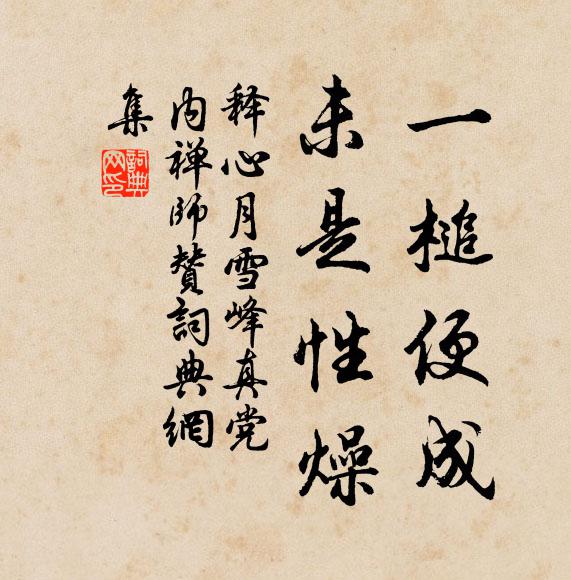 一槌便成
未是性燥
释心月雪峰真党
内禅师赞詞典網
集
詞典
网印